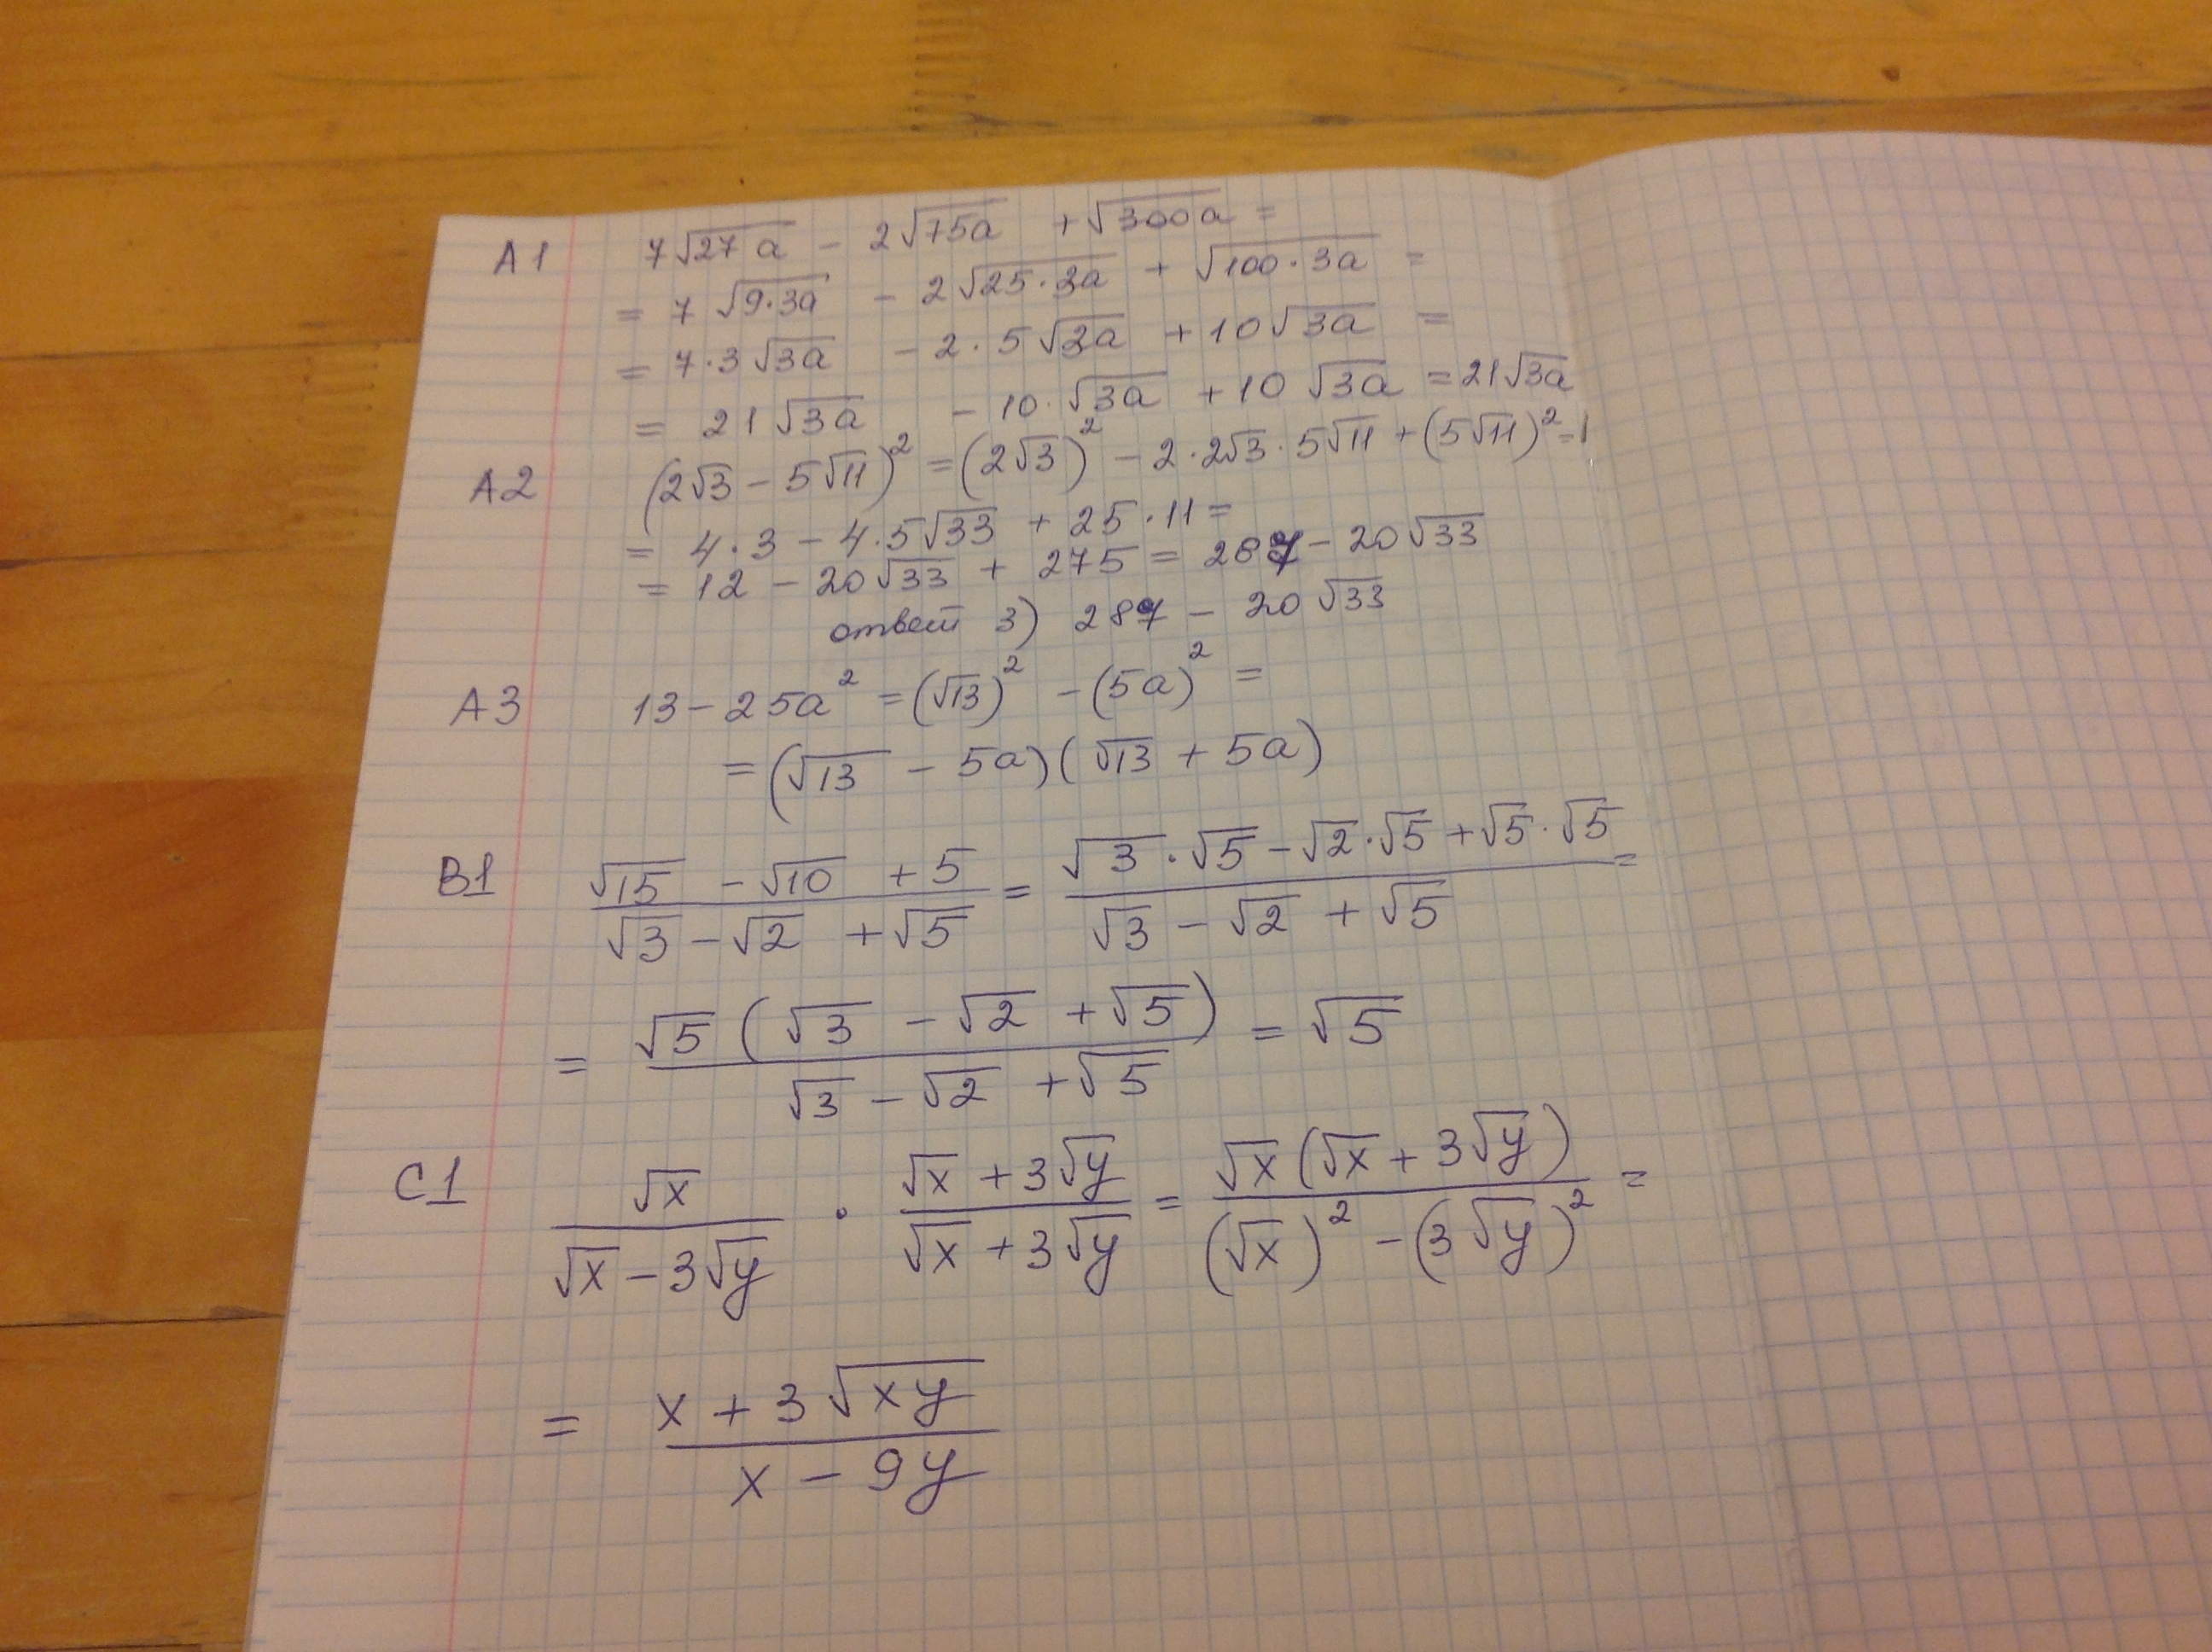 A1 7√27a − 2√75a + √300a =
= 7 √9·3a − 2√25·3a + √100·3a =
= 7·3√3a − 2·5√3a + 10√3a =
= 21√3a − 10·√3a + 10√3a = 21√3a
A2 (2√3 − 5√11)² = (2√3)² − 2·2√3·5√11 + (5√11)² =
= 4·3 − 4·5√33 + 25·11 =
= 12 − 20√33 + 275 = 287 − 20√33
ответ 3) 287 − 20√33
A3 13 − 25a² = (√13)² − (5a)² =
= (√13 − 5a)(√13 + 5a)
B1 (√15 − √10 + 5)/(√3 − √2 + √5) = (√3·√5 − √2·√5 + √5·√5)/(√3 − √2 + √5) =
= √5(√3 − √2 + √5)/(√3 − √2 + √5) = √5
C1 √x/(√x − 3√y) · (√x + 3√y)/(√x + 3√y) = √x(√x + 3√y)/((√x)² − (3√y)²) =
= (x + 3√xy)/(x − 9y)